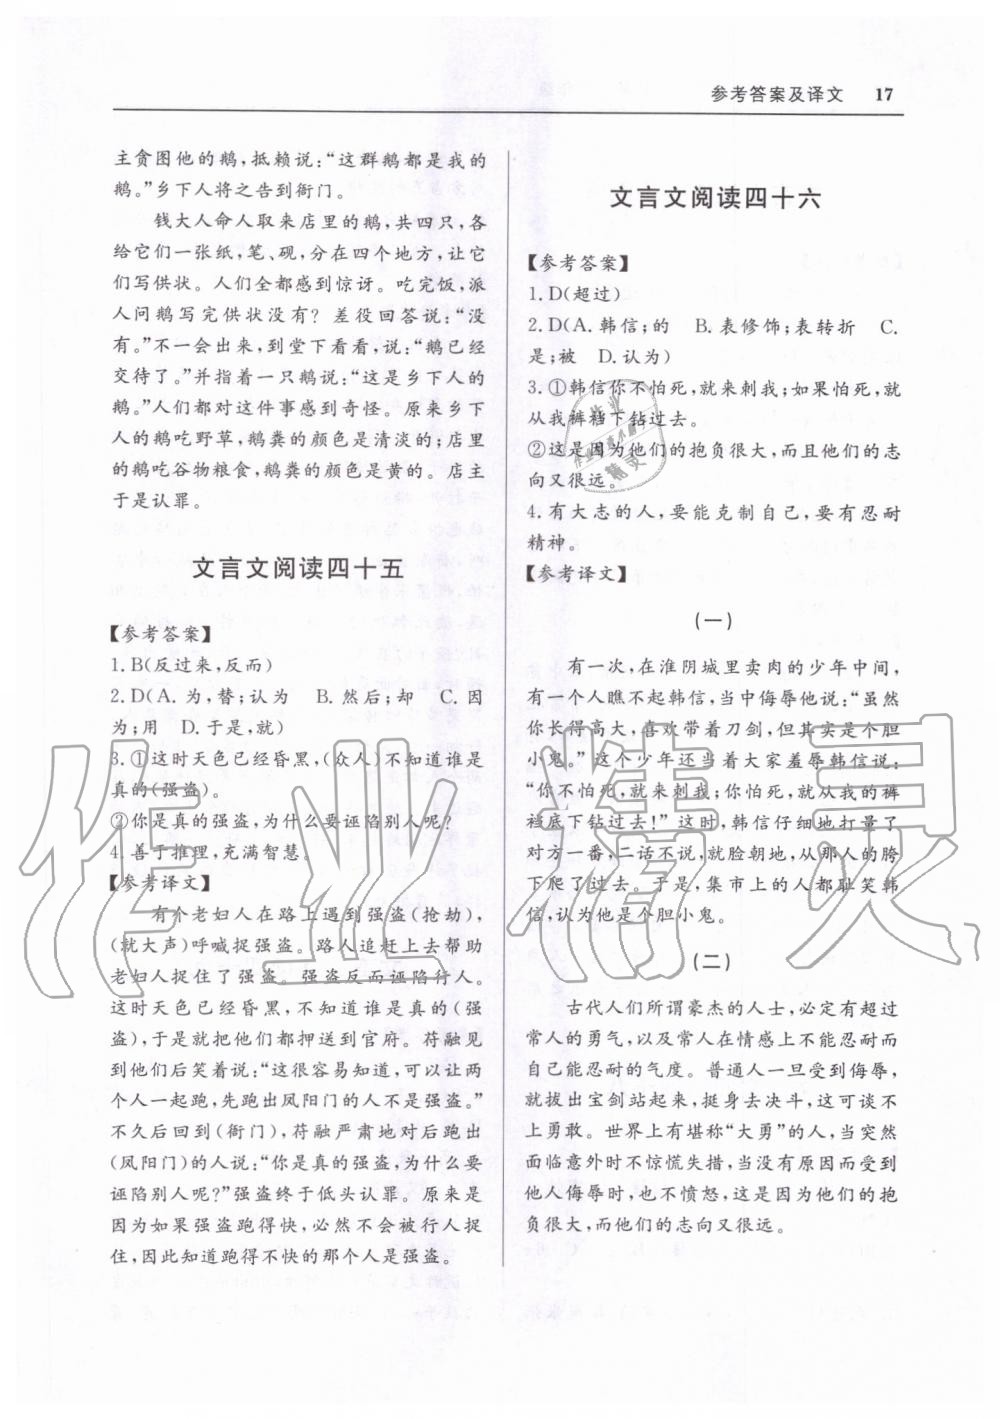 参考答案及译文 17
主贪图他的鹅,抵赖说:“这群鹅都是我的
鹅。”乡下人将之告到衙门。
钱大人命人取来店里的鹅,共四只,各
给它们一张纸,笔、砚,分在四个地方,让它
们写供状。人们全都感到惊讶。吃完饭,派
人问鹅写完供状没有?差役回答说:“没
有。”不一会出来,到堂下看看,说:“鹅已经
交待了。”并指着一只鹅说:“这是乡下人的
鹅。”人们都对这件事感到奇怪。原来乡下
人的鹅吃野草,鹅粪的颜色是清淡的;店里
的鹅吃谷物粮食,鹅粪的颜色是黄的。店主
于是认罪。
文言文阅读四十五
【参考答案】
1. B(反过来,反而)
2. D(A. 为,替;认为 B. 然后;却 C. 因
为;用 D. 于是,就)
3. ①这时天色已经昏黑,(众人)不知道谁是
真的(强盗)。
②你是真的强盗,为什么要诬陷别人呢?
4. 善于推理,充满智慧。
【参考译文】
有个老妇人在路上遇到强盗(抢劫),
(就大声)呼喊捉强盗。路人追赶上去帮助
老妇人捉住了强盗。强盗反而诬陷行人。
这时天色已经昏黑,不知道谁是真的(强
盗),于是就把他们都押送到官府。苻融见
到他们后笑着说:“这很容易知道,可以让两
个人一起跑,先跑出凤阳门的人不是强盗。”
不久后回到(衙门),苻融严肃地对后跑出
(凤阳门)的人说:“你是真的强盗,为什么要
诬陷别人呢?”强盗终于低头认罪。原来是
因为如果强盗跑得快,必然不会被行人捉
住,因此知道跑得不快的那个人是强盗。
文言文阅读四十六
【参考答案】
1. D(超过)
2. D(A. 韩信;的 B. 表修饰;表转折 C.
是;被 D. 认为)
3. ①韩信你不怕死,就来刺我;如果怕死,就
从我裤裆下钻过去。
②这是因为他们的抱负很大,而且他们的志
向又很远。
4. 有大志的人,要能克制自己,要有忍耐
精神。
【参考译文】
(一)
有一次,在淮阴城里卖肉的少年中间,
有一个人瞧不起韩信,当中侮辱他说:“虽然
你长得高大,喜欢带着刀剑,但其实是个胆
小鬼。”这个少年还当着大家羞辱韩信说:
“你不怕死,就来刺我;你怕死,就从我的裤
裆底下钻过去!”这时,韩信仔细地打量了
对方一番,二话不说,就脸朝地,从那人的胯
下爬了过去。于是,集市上的人都耻笑韩
信,认为他是个胆小鬼。
(二)
古代人们所谓豪杰的人士,必定有超过
常人的勇气,以及常人在情感上不能忍耐而
自己能忍耐的气度。普通人一旦受侮辱,
就拔出宝剑站起来,挺身去决斗,这可谈不
上勇敢。世界上有堪称“大勇”的人,当突然
面临意外时不惊慌失措,当没有原因而受到
他人侮辱时,也不愤怒,这是因为他们的抱
负很大,而他们的志向又很远。
作业精灵